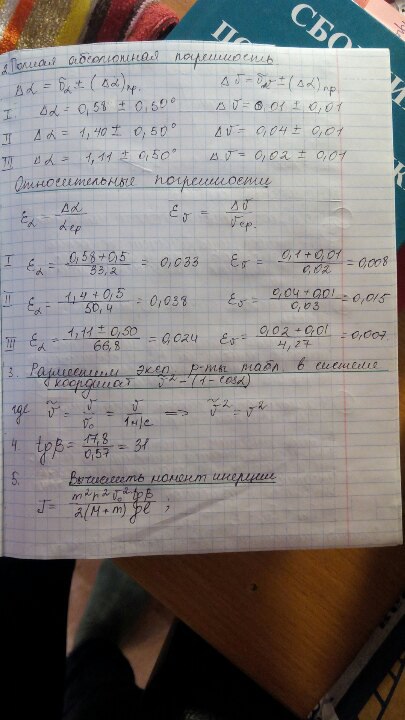 СБОР
ПО
2. Полная абсолютная погрешность
Δα = σα ± (Δα)пр. Δv = σv ± (Δα)пр.
I. Δα = 0,58 ± 0,50° Δv = 0.01 ± 0,01
II Δα = 1,40 ± 0,50° Δv = 0,04 ± 0,01
III Δα = 1,11 ± 0,50° Δv = 0,02 ± 0,01
Относительные погрешности
εα = Δα / αср. εv = Δv / vср.
I εα = 0,58+0,5 / 33,2 = 0,033 εv = 0,1+0,01 / 0,02 = 0,008
II εα = 1,4+0,5 / 50,4 = 0,038 εv = 0,04+0,01 / 0,03 = 0,015
III εα = 1,11 ± 0,50 / 66,8 = 0,024 εv = 0,02+0,01 / 4,27 = 0,007
3. Разместим эксп. р-ты табл. в системе
координат v̄² - (1-cosα)
где ṽ = v / v₀ = v / 1м/с => ṽ² = v²
4. tgβ = 17,8 / 0,57 = 31
5. Вычислить момент инерции
J = m²r²v₀²tgβ / 2(M+m)gl ;